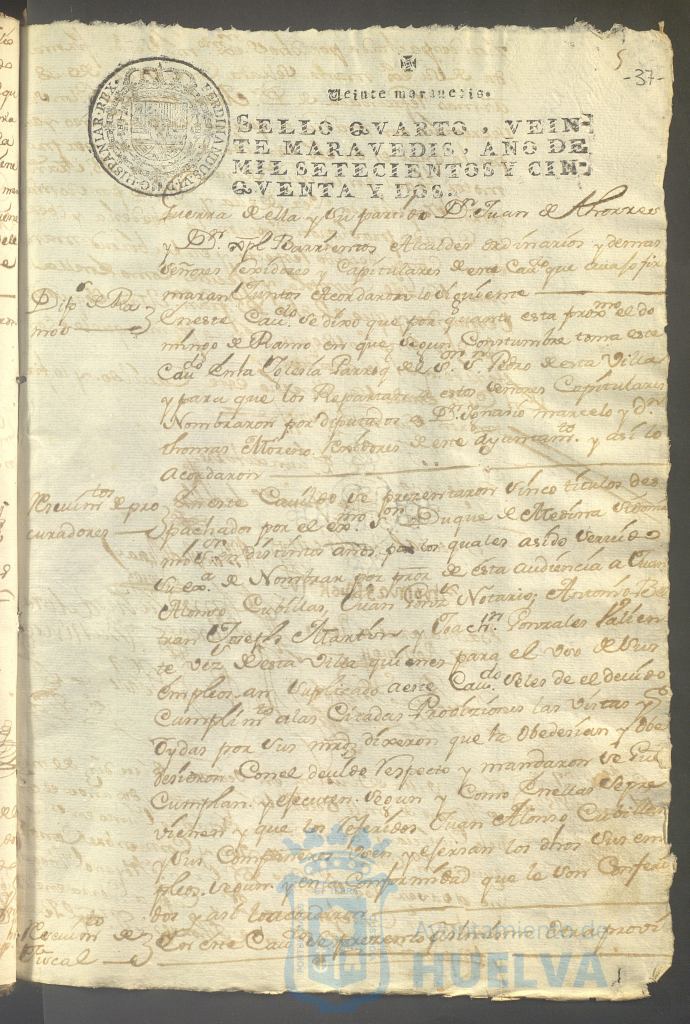 5
-37-
Veinte maravedis.
FERDINANDUS VI D G HISPANIAR REX
SELLO QVARTO, VEIN-
TE MARAVEDIS, AÑO DE
MIL SETECIENTOS Y CIN-
QVENTA Y DOS.
Guerra de ella y su partido Dn. Juan de
y Dn. Xpl Barrientos Alcaldes ordinarios y demas
señores rexidores y Capitulares de este Cavdo que avajo fir
maran Juntos acordaron lo siguiente
Dipdos de Ra
mos
En este Cavdo se dixo que por quanto esta proxmo el do
mingo de Ramo en que segun Constumbre toma este
Cavdo en la Iglesia Parroq del Sor Sn Pedro de esta Villa
y para que los Repartan a estos señores Capitulares
Nombraron por diputados a Dn. Ignacio marcelo y Dn
thomas Moreno rexidores de este ayuntamto. y asi lo
acordaron
Recivimtos de pro
curadores
En este Cavildo se prezentaron sinco titulos des
pachados por el exmo Sor Duque de Medina Sidonia
mi Sor en distintos años por los quales a sido servido
su exa de Nombrar por pror de esta audiencia a Juan
Alonso Cubillas, Juan Notario; Antonio Bel
tran Joseph Martin y Joachn Gonzales Valien
te vezs de esta Villa quienes para el uso de sus
empleos an suplicado a este Cavdo se les de el devido
Cumplimto a las Citadas Provisiones las vistas y
oydas por sus mrds dixeron que las obedecian y obe
desieron Con el devido respecto y mandaron se
Cumplan y executen segun y Como en ellas se pre
vienen y que los referidos Juan Alonso Cubillas
y sus Compañeros usen y exersan los dhos sus em
pleos segun y en la Conformidad que le son Conferi
dos y asi lo acordaron
Recivimto de
fiscal
En este Cavdo se prezento
Ayuntamiento de
HUELVA